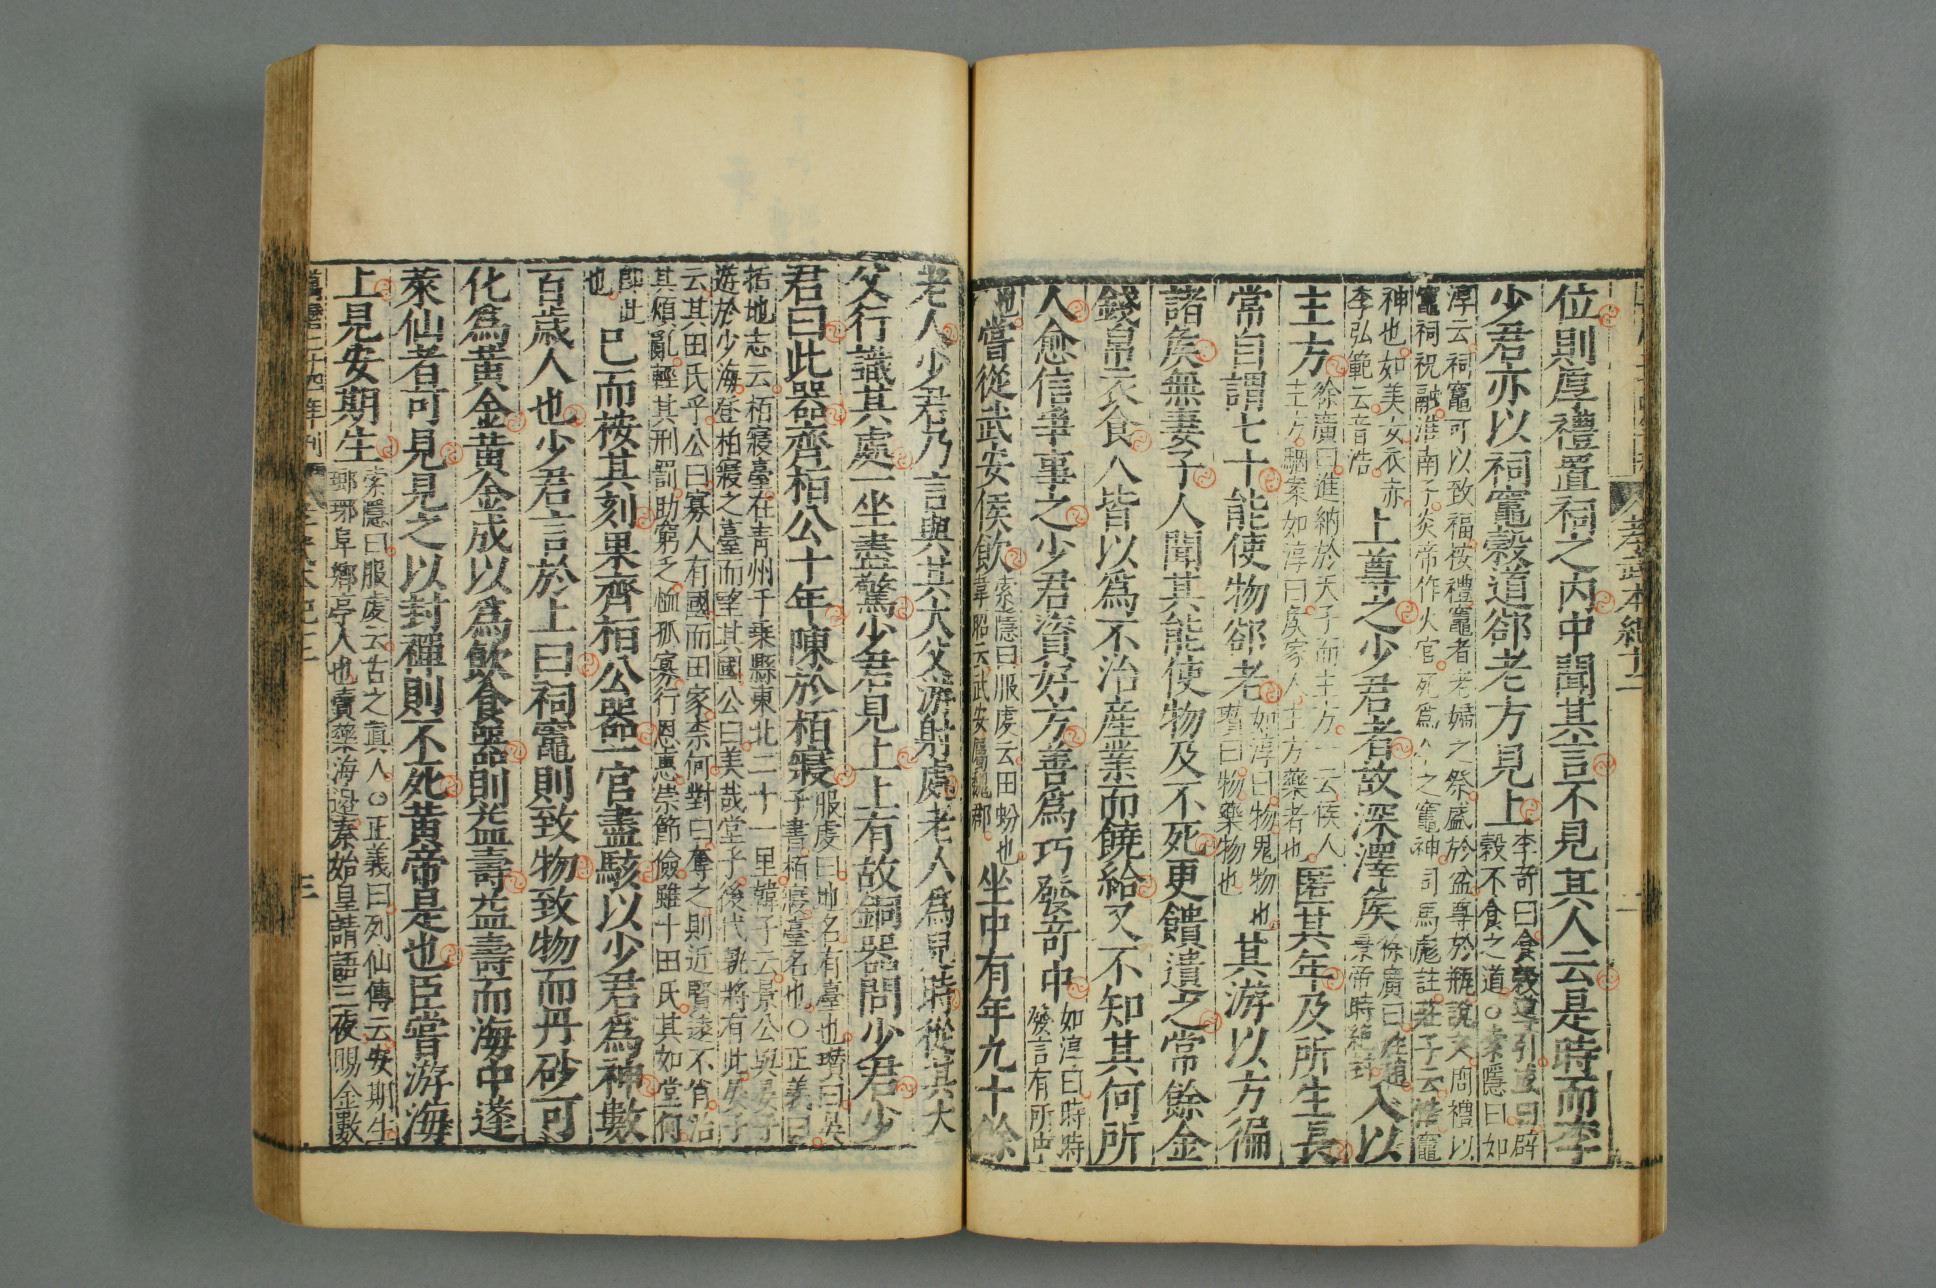 孝武本紀十二
位則厚禮置祠之內中聞其言不見其人云是時而李
少君亦以祠竈穀道卻老方見上李奇曰食穀導引或曰辟
穀不食之道○索隱曰如
淳云祠竈可以致福按禮竈者老婦之祭盛於盆尊於瓶說文周禮以
竈祠祝融淮南子炎帝作火官死為之竈神司馬彪註莊子云浩竈
神也如美女衣赤
李弘範云音浩
上尊之少君者故深澤矦徐廣曰姓趙
景帝時絕封
入以
主方徐廣曰進納於天子而主方一云侯人
主方駰案如淳曰矦家人主方藥者也
匿其年及所生長
常自謂七十能使物卻老如淳曰物鬼物也
瓚曰物藥物也
其游以方徧
諸矦無妻子人聞其能使物及不死更饋遺之常餘金
錢帛衣食人皆以爲不治產業而饒給又不知其何所
人愈信爭事之少君資好方善爲巧發奇中如淳曰時時
發言有所中
也
嘗從武安侯飲索隱曰服虔云田蚡也
韋昭云武安屬魏郡
坐中有年九十餘
老人少君乃言與其大父游射處老人爲兒時從其大
父行識其處一坐盡驚少君見上上有故銅器問少君少
君曰此器齊桓公十年陳於栢寢服虔曰地名有臺也瓚曰晏
子書栢寢臺名也○正義曰
括地志云栢寢臺在青州千乘縣東北二十一里韓子云景公與晏子
遊於少海登柏寢之臺而望其國公曰美哉堂乎後代孰將有此晏子
云其田氏乎公曰寡人有國而田家柰何對曰奪之則近賢遠不肖治
其煩亂輕其刑罰助窮乏恤孤寡行恩惠崇節儉雖十田氏其如堂何
即此
也
已而按其刻果齊桓公器一宮盡駭以少君爲神數
百歲人也少君言於上曰祠竈則致物致物而丹砂可
化爲黃金黃金成以爲飲食器則益壽益壽而海中蓬
萊仙者可見見之以封禪則不死黃帝是也臣嘗游海
上見安期生索隱曰服虔云古之真人○正義曰列仙傳云安期生
瑯琊阜鄉亭人也賣藥海邊秦始皇請語三夜賜金數
三